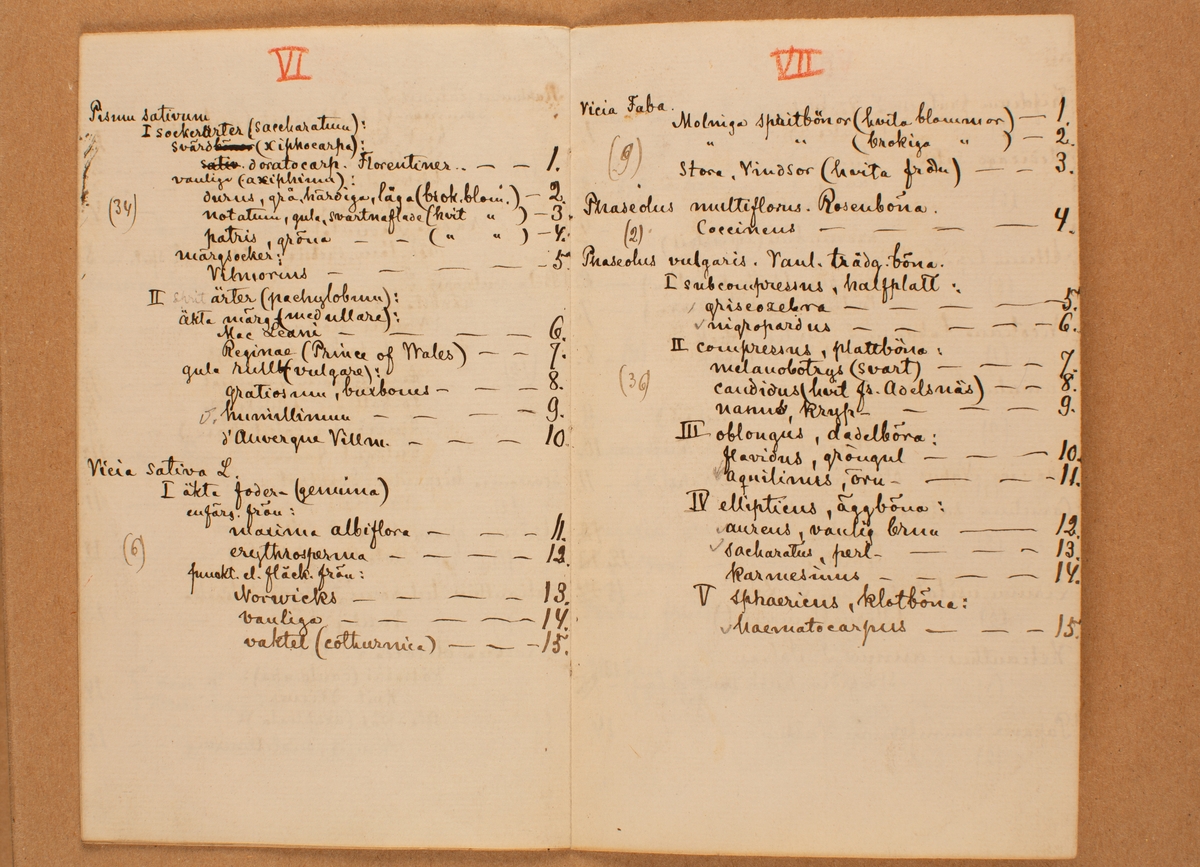 VI
Pisum sativum
I sockerärter (saccharatum):
svärd (xiphocarpa):
doratocarp. Florentiner.. — — 1.
vanliga (axiphium):
durus, grå, härdiga, låga (brok. blom.) — 2.
(34)
notatum, gula, svartnaflade (hvit " ) — 3.
patris, gröna — — ( " " ) — 4.
märgsocker:
Vilmorins — — — — 5.
II ärter (pachylobum):
äkta märg (medullare):
Mac Leani — — — — 6.
Reginae (Prince of Wales) — — 7.
gula (vulgare):
gratiosum, buxboms — — — 8.
humillimum — — — 9.
d'Auvergne Villm. — — — 10.
Vicia Sativa L.
I äkta foder- (genuina)
enfärg. frön:
maxima albiflora — — — 11.
(6)
erythrosperma — — — — 12.
punkt. el. fläck. frön:
Norwicks — — — — 13.
vanliga — — — — 14.
vaktel (cothurnica) — — — 15.
VII
Vicia Faba.
Molniga spritbönor (hvita blommor) — 1.
" " (brokiga " ) — 2.
(9)
Stora, Vindsor (hvita frön) — — 3.
Phaseolus multiflorus. Rosenböna.
(2)
Coccineus — — — — 4.
Phaseolus vulgaris. Vanl. trädg. böna.
I subcompressus, halfplatt:
griseozebra — — — 5.
nigropardus — — — — 6.
II compressus, plattböna:
melanobotrys (svart) — — — 7.
(36)
candidus (hvit fr. Adelsnäs) — — 8.
nanus, kryp- — — — — 9.
III oblongus, dadelböna:
flavidus, gröngul — — — 10.
aquilinus, örn- — — — 11.
IV ellipticus, äggböna:
aureus, vanlig brun — — 12.
sacharatus, perl- — — — 13.
karmesinus — — — — 14.
V sphaericus, klotböna:
haematocarpus — — — 15.